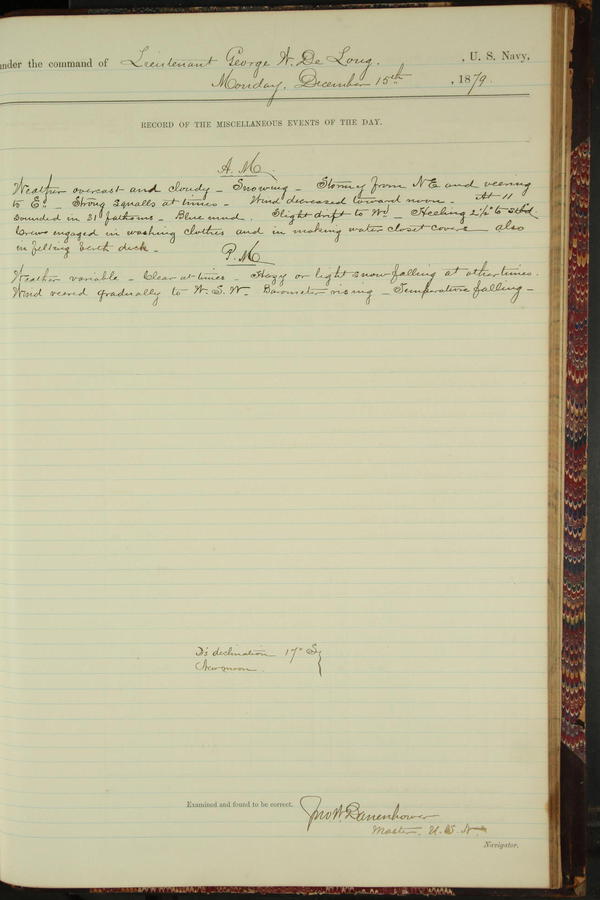 under the command of Lieutenant George W. De Long, , U. S. Navy,
Monday, December 15th , 1879.
RECORD OF THE MISCELLANEOUS EVENTS OF THE DAY.
A.M.
Weather overcast and cloudy – Snowing – Stormy from NE and veering
to Ed. – Strong squalls at times – Wind decreased toward noon. – At 11
sounded in 31 fathoms – Blue mud. Slight drift to Wd – Heeling 2½° to stbd.
Crew engaged in washing clothes and in making water closet covers also
in felting berth deck –
P.M.
Weather variable – Clear at times – Hazy or light snow falling at other times.
Wind veered gradually to W.S.W. Barometer rising – Temperature falling –
D's declination 17° S }
New moon.
Examined and found to be correct. Jno W. Danenhower
Master, U.S.N.
Navigator.